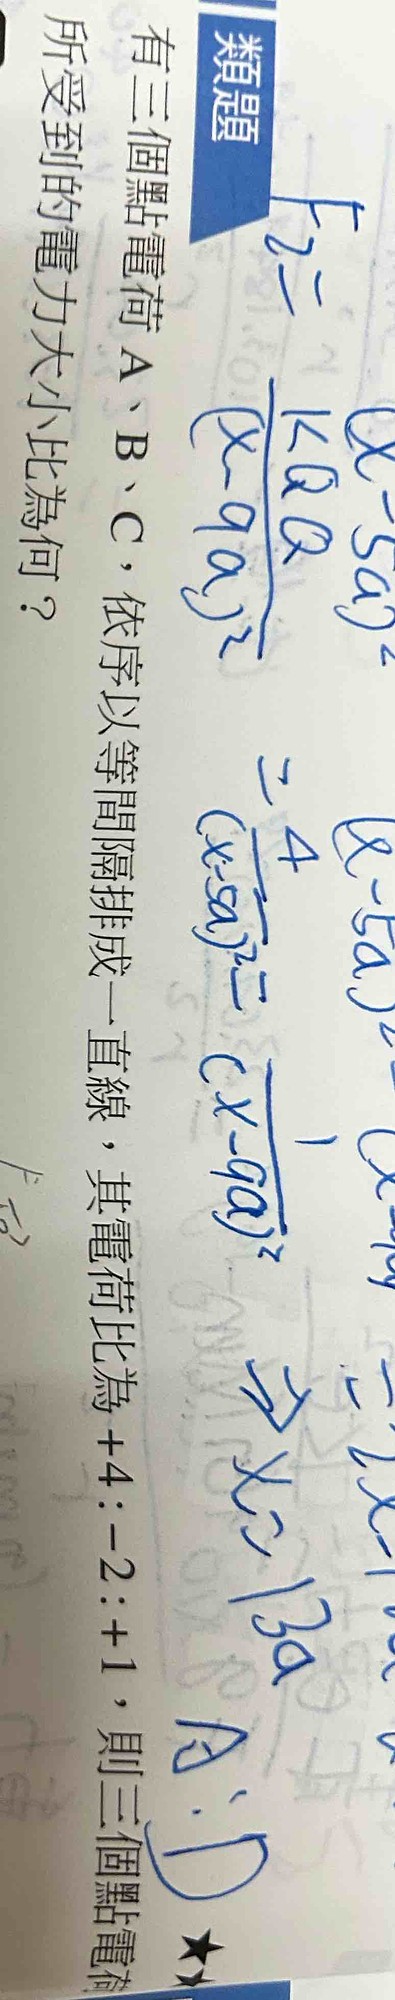 F₂= KQQ/(x-9a)² = 4/(x-5a)² = 1/(x-9a)² ⇒ x=13a A:D
類題
有三個點電荷 A、B、C，依序以等間隔排成一直線，其電荷比為 +4:-2:+1，則三個點電荷
所受到的電力大小比為何？